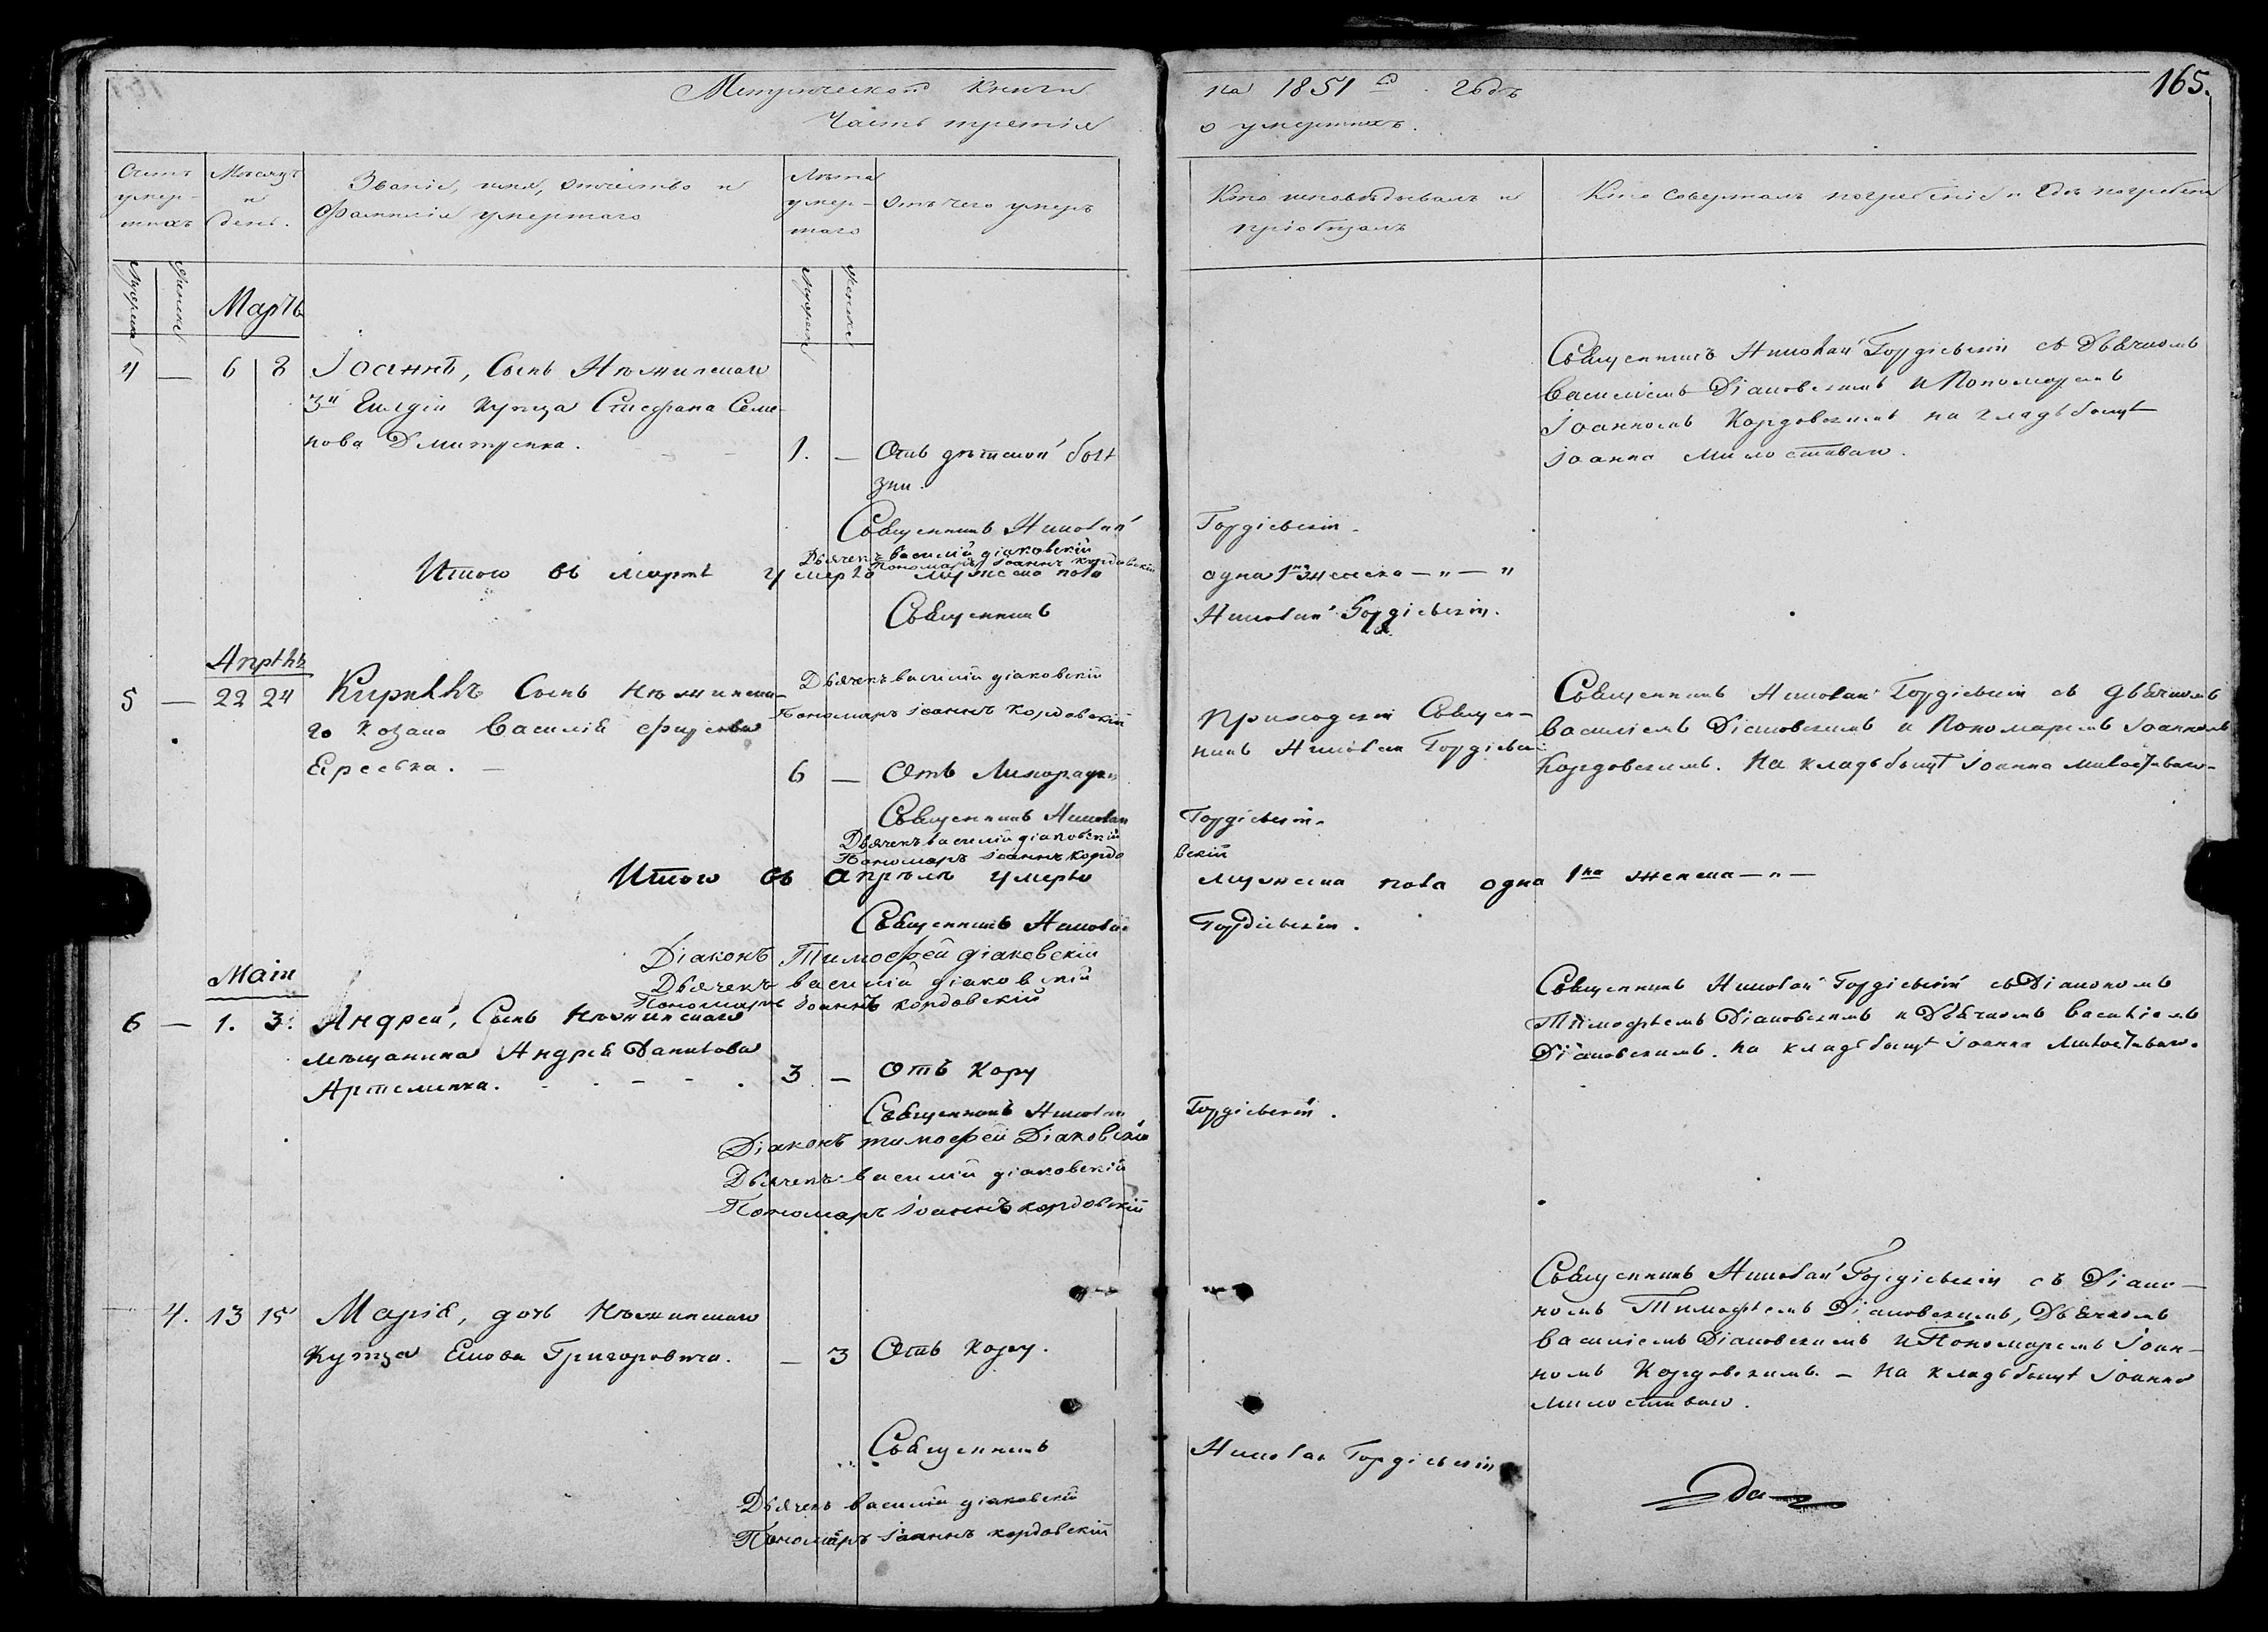 Метрической Книги на 1851й годъ
165.
Часть третія о умершихъ.
Счетъ умер-шихъ
Мѣсяцъ и день.
Званіе, имя, отчество и
фамилія умершаго
Лѣта умер-шаго
Отъ чего умеръ
Кто исповѣдывалъ и
пріобщалъ
Кто совершалъ погребеніе и гдѣ погребены
Мужеска
Женска
Мартъ
Мужеска
Женска
4 — 6 8 Іоаннъ, Сынъ Нѣжинскаго
3й Гилдіи Купца Стефана Семе-
нова Дмитренка. 1. — Отъ дѣтской болѣ
зни.
Священникъ Николай Гордіевскій съ Дьячкомъ
Василіемъ Діаковскимъ и Пономаремъ
Іоанномъ Кордовскимъ на кладбищѣ
Іоанна Милостиваго.
Священникъ Николай Гордіевскій.
Дьячекъ василій діаковскій
Пономарь Іоаннъ Кордовскій
Итого въ мартѣ умерло мужеска пола одна 1на женска — „ — „
Священникъ Николай Гордіевскій.
Апрѣль
Дьячекъ василій діаковскій
Пономарь іоаннъ Кордовскій
5 — 22 24 Кириллъ Сынъ Нѣжинска-
го Козака Василія
6 — Отъ Лихорадки
Приходскій Священ-
никъ Николай Гордіевскій
Священникъ Николай Гордіевскій съ дьячкомъ
Василіемъ Діаковскимъ и Пономаремъ Іоанномъ
Кордовскимъ. На кладбищѣ Іоанна Милостиваго.
Священникъ Николай Гордіевскій.
Дьячекъ василій діаковскій
Пономарь іоаннъ Кордо вскій
Итого въ апрѣлѣ умерло мужеска пола одна 1на женска — „ —
Священникъ Николай Гордіевскій.
Діаконъ Тимофей діаковскій
Дьячекъ василій діаковскій
Пономарь Іоаннъ кордовскій
Маій
6 — 1. 3. Андрей, Сынъ Нѣжинскаго
мѣщанина Андрея Данилова
Артеменка. 3 — Отъ Кору
Священникъ Николай Гордіевскій съ Діакономъ
Тимофѣемъ Діаковскимъ и Дьячкомъ Василіемъ
Діаковскимъ. на кладбищѣ Іоанна Милостиваго.
Священникъ Николай Гордіевскій.
Діаконъ тимофей Діаковскій
Дьячекъ василій діаковскій
Пономарь іоаннъ кордовскій
— 4. 13 15 Марія, дочь Нѣжинскаго
Купца Григоровича. — 3 Отъ Кору.
Священникъ Николай Гордіевскій съ Діако-
номъ Тимофѣемъ Діаковскимъ, Дьячкомъ
Василіемъ Діаковскимъ и Пономаремъ Іоан-
номъ Кордовскимъ. — На кладбищѣ Іоанна
Милостиваго.
Священникъ Николай Гордіевскій
Дьячекъ василій діаковскій
Пономарь іоаннъ кордовскій